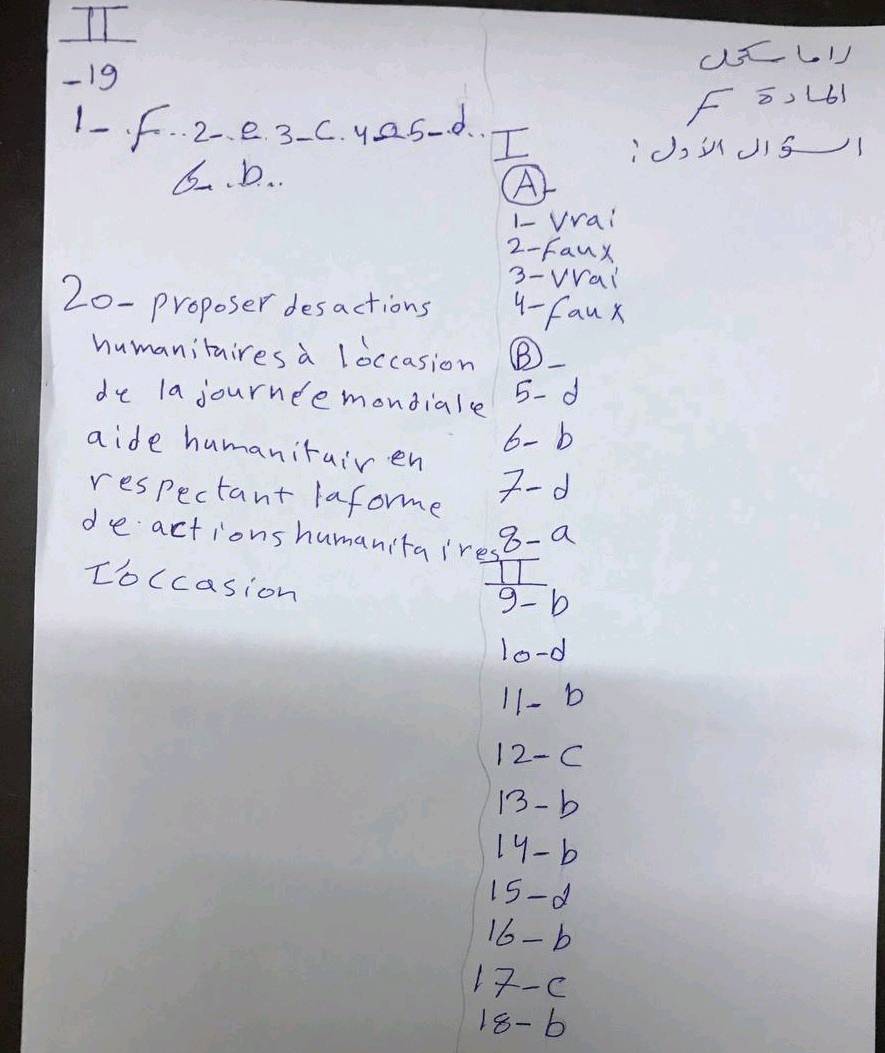 راما سكحل
المادة F
السؤال الأول :
I
A-
1- Vrai
2- Faux
3- Vrai
4- faux
B-
5- d
6- b
7- d
8- a
II
9- b
10-d
11- b
12- c
13- b
14- b
15- d
16- b
17- c
18- b
II
-19
1- .f.. 2-.e. 3-c. 4 a 5-.d..
6-.b..
20- proposer des actions
humanitaires à l'occasion
de la journée mondiale
aide humanitair en
respectant la forme
de actions humanitaires
l'occasion